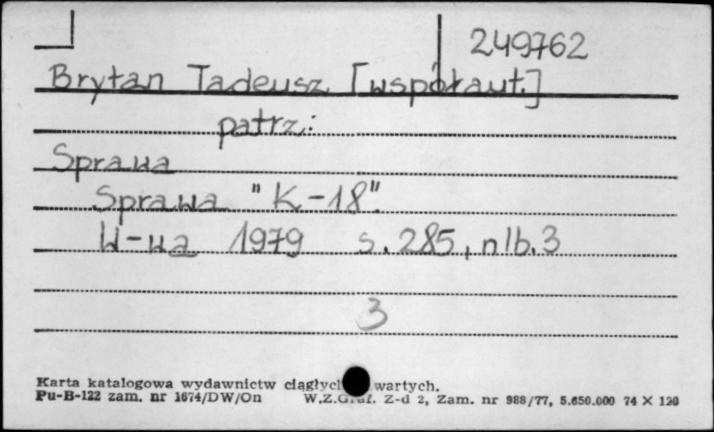 249762
Brytan Tadeusz [współaut.]
patrz:
Sprawa
Sprawa "K-18".
W-wa 1979 s. 285, nlb. 3
3
Karta katalogowa wydawnictw ciągłych wartych.
Pu-B-122 zam. nr 1674/DW/On W.Z.Graf. Z-d 2, Zam. nr 988/77, 5.650.000 74 X 120